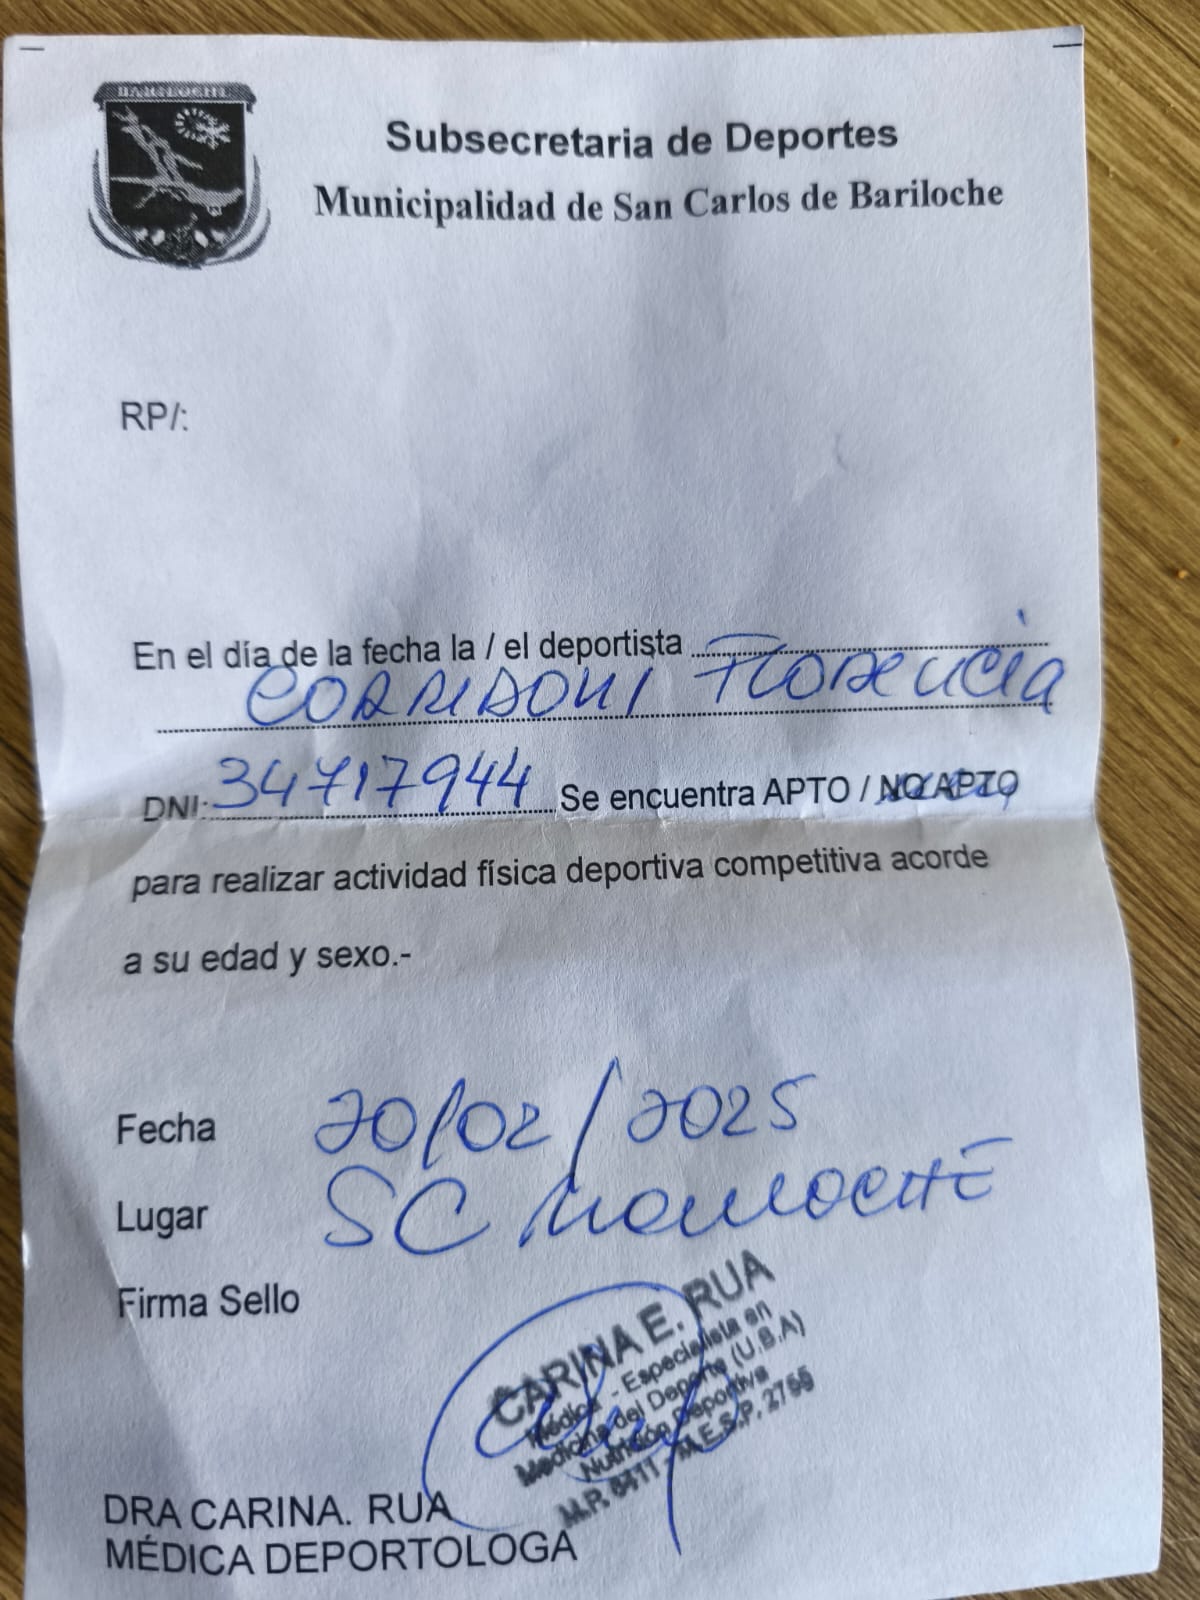 BARILOCHE
Subsecretaria de Deportes
Municipalidad de San Carlos de Bariloche
RP/:
En el día de la fecha la / el deportista
CORRIDONI Florencia
DNI: 34717944 Se encuentra APTO / NO APTO
para realizar actividad física deportiva competitiva acorde
a su edad y sexo.-
Fecha 20/02/2025
Lugar SC
Firma Sello
CARINA E. RUA
Médica - Especialista en
Medicina del Deporte (U.B.A)
Nutrición Deportiva
M.P. 6411 - M.E.S.P. 2755
DRA CARINA. RUA
MÉDICA DEPORTOLOGA